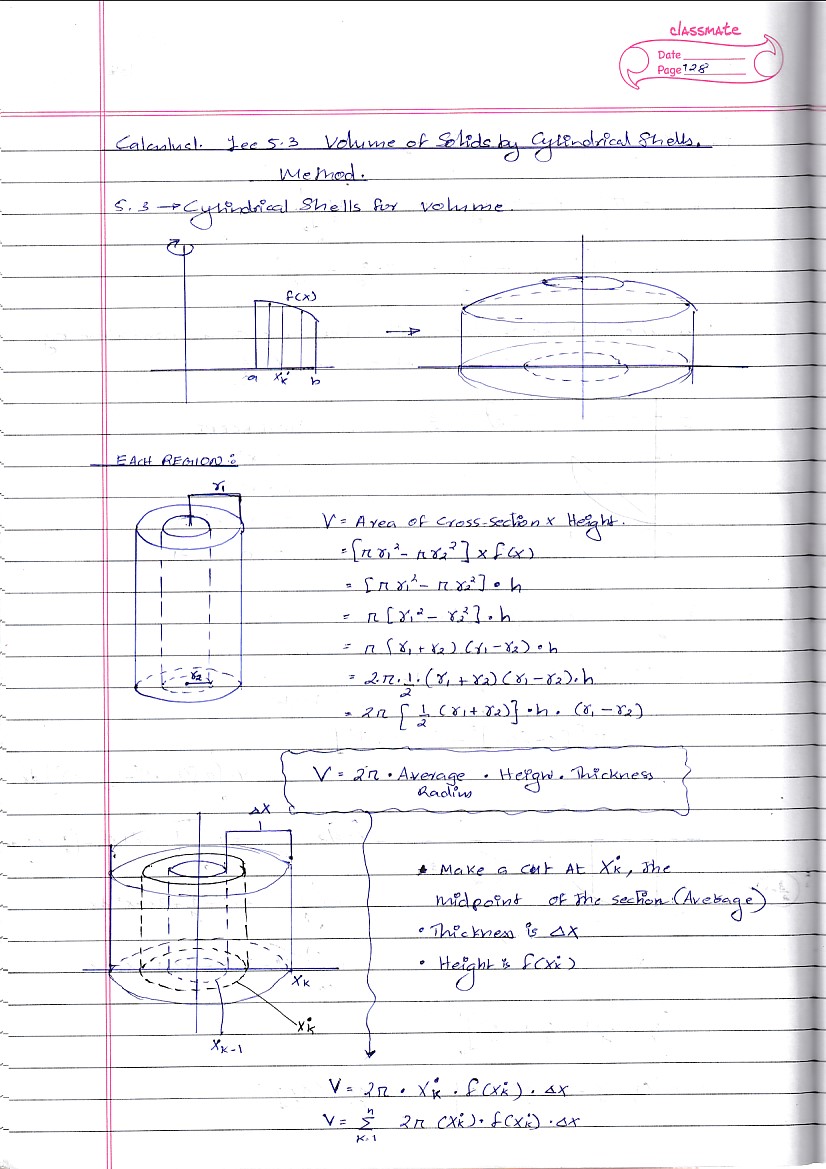 classmate
Date
Page 128
Calculus1. Lec 5.3 Volume of Solids by Cylindrical Shells.
Method.
5.3 → Cylindrical Shells for volume.
f(x)
a xₖ* b
EACH REGION:
r₁
V = Area of Cross-section x Height.
= [πr₁² - πr₂²] x f(x)
= [πr₁² - πr₂²] • h
= π[r₁² - r₂²] • h
= π(r₁ + r₂)(r₁ - r₂) • h
r₂
= 2.π.1/2.(r₁ + r₂)(r₁ - r₂).h
= 2π [1/2 (r₁ + r₂)] • h • (r₁ - r₂)
V = 2π • Average • Heighr. Thickness
Radius
Δx
• Make a cut At xₖ*, The
midpoint of The section. (Average)
• Thickness is Δx
• Height is f(xₖ*)
xₖ
xₖ*
xₖ₋₁
V = 2π • xₖ* • f(xₖ*) • Δx
V = Σ n k=1 2π (xₖ*) • f(xₖ*) • Δx